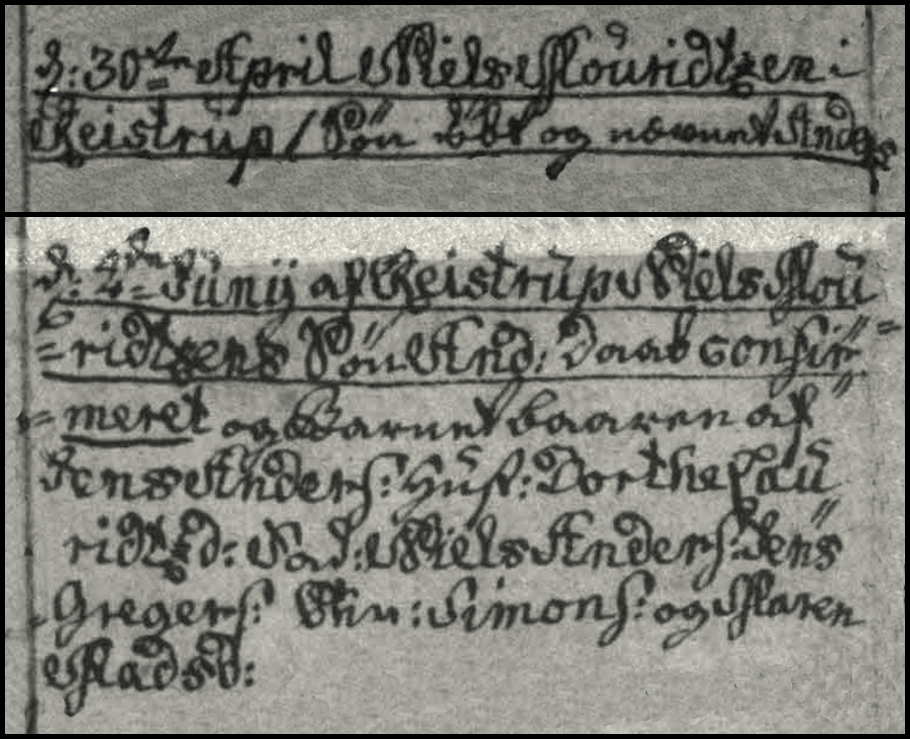 d: 30te April Niels Mouridtzen i
Reistrup / Søn døbt og nævnet Anders
d: 4de Junij af Reistrup Niels Mou
= ridtzens Søn And: Daab confir =
= meret og Barnet baaren af
Jens Anders: Hus: Dorthe Lau
ridtzd: Fad: Niels Anders: Jens
Gregers: Simons: og Maren
Madsd: